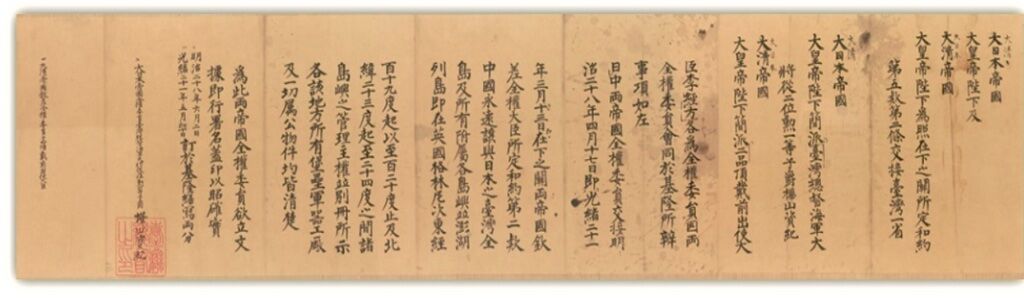 大日本帝國
大皇帝陛下及
大清帝國
大皇帝陛下為照在下之關所定和約
第五款第二條交接臺灣一省
大日本帝國
大皇帝陛下簡派臺灣總督海軍大
將從二位勲一等子爵樺山資紀
大清帝國
大皇帝陛下簡派二品頂戴前出使大
臣李經方各為全權委員因兩
全權委員會同於基隆所辦
事項如左
日中兩帝國全權委員交接明
治二十八年四月十七日即光緒二十一
年三月二十三日在下之關兩帝國欽
差全權大臣所定和約第二款
中國永遠讓與日本之臺灣全
島及所有附屬各島嶼並澎湖
列島即在英國格林尼次東經
百十九度起以至百二十度止及北
緯二十三度起至二十四度之間諸
島嶼之管理主權並別冊所示
各該地方所有堡壘軍器工廠
及一切屬公物件均皆清楚
為此兩帝國全權委員欲立文
據即行署名蓋印以昭確實
明治二十八年六月二日
光緒二十一年五月初十日
訂於基隆繕寫兩分
樺山資紀